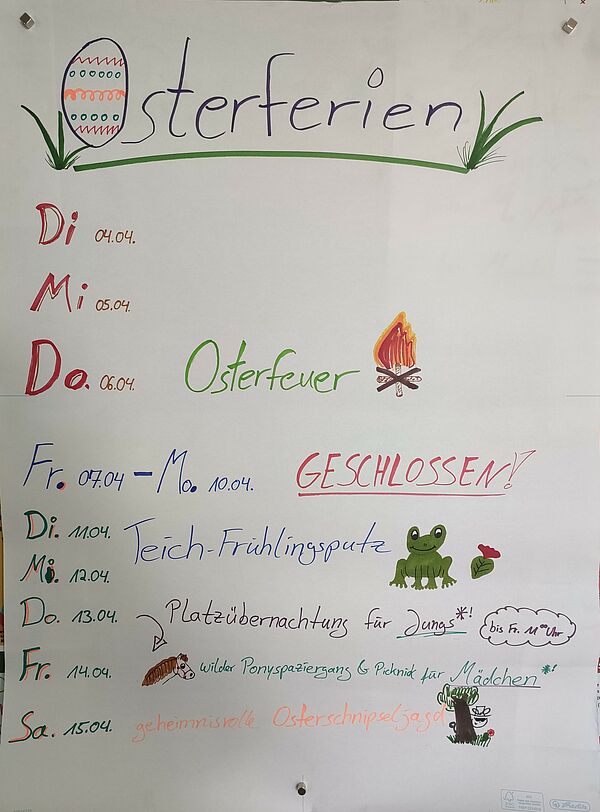 Osterferien
Di 04.04.
Mi 05.04.
Do. 06.04. Osterfeuer
Fr. 07.04 - Mo. 10.04. GESCHLOSSEN!
Di. 11.04. Teich-Frühlingsputz
Mi. 12.04.
Do. 13.04. Platzübernachtung für Jungs*! bis Fr. 11⁰⁰ Uhr
Fr. 14.04. wilder Ponyspaziergang & Picknick für Mädchen*!
Sa. 15.04. geheimnisvolle Osterschnipseljagd